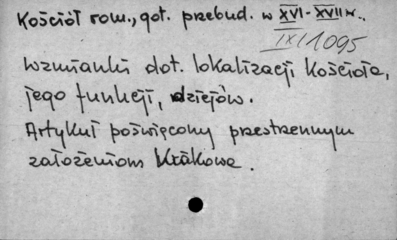 Kościół rom., got. przebud. w XVI-XVII w.,
IX/1095
wzmianki dot. lokalizacji kościoła,
jego funkcji, dziejów.
Artykuł poświęcony przestrzennym
założeniom Krakowa.